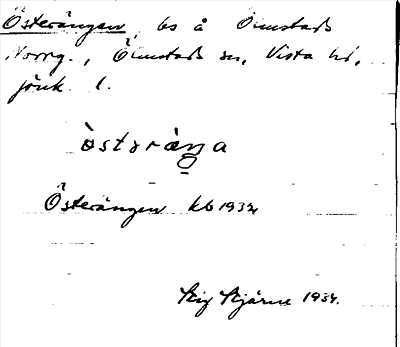 Österängen, bs å Ölmstads
Norrg., Ölmstads sn, Vista hd,
jönk. l.
Österängen kb 1934
Stig Bjärne 1934.